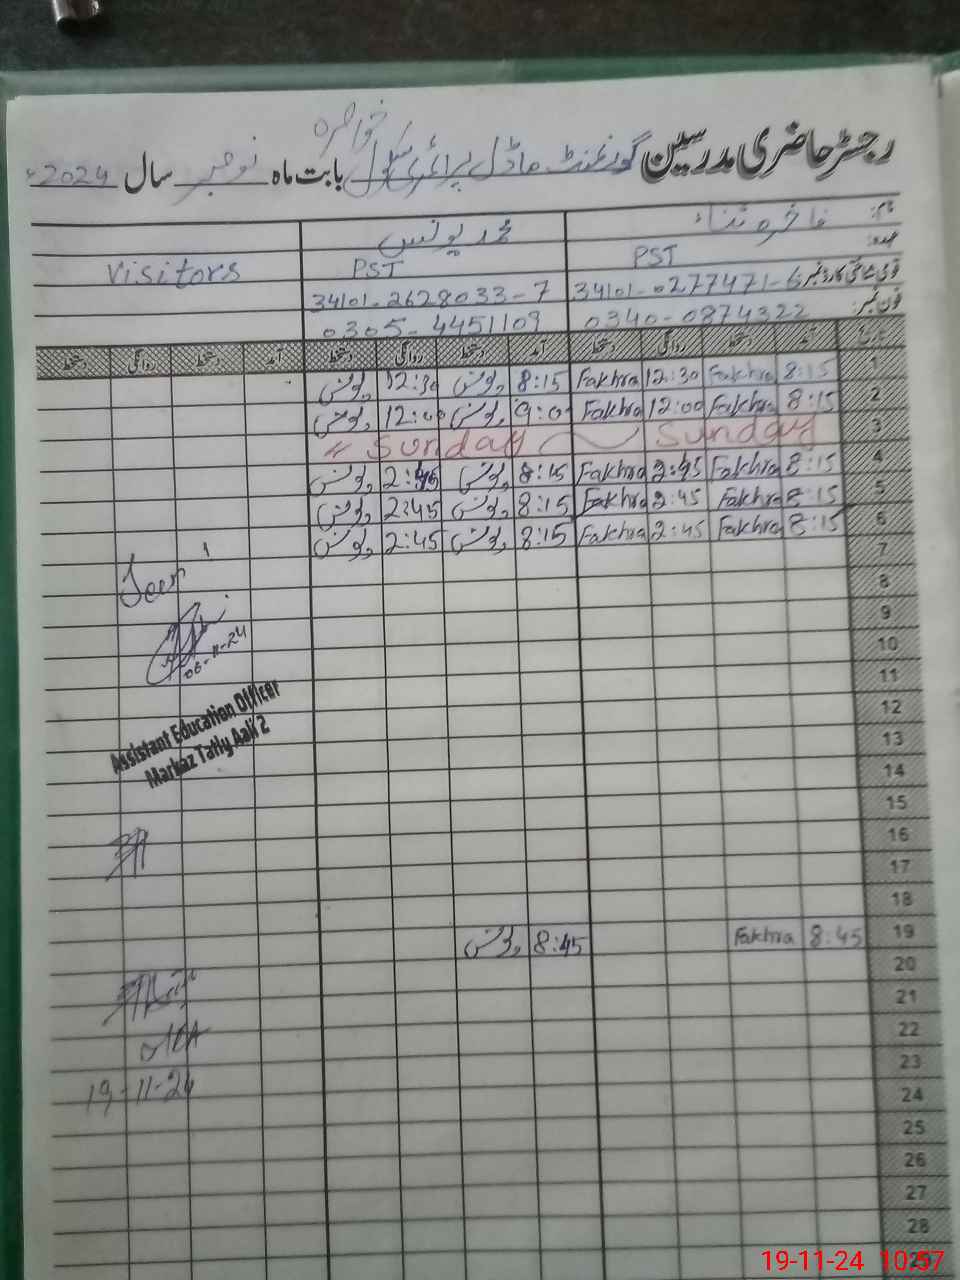 خواجرہ
رجسٹر حاضری مدرسین گورنمنٹ ماڈل پرائمری سکول بابت ماہ نومبر سال 2024ء
نام: فاخرہ ثناء محمد یونس
عہدہ: PST PST Visitors
قومی شناختی کارڈ نمبر: 34101-0277471-6 34101-2628033-7
فون نمبر: 0340-0874322 0305-4451109
تاریخ آمد دستخط روانگی دستخط آمد دستخط روانگی دستخط آمد دستخط روانگی دستخط
1 8:15 Fakhra 12:30 Fakhra 8:15 یونس 12:30 یونس
2 8:15 Fakhra 12:00 Fakhra 9:00 یونس 12:00 یونس
3 Sunday Sunday
4 8:15 Fakhra 2:45 Fakhra 8:15 یونس 2:45 یونس
5 8:15 Fakhra 2:45 Fakhra 8:15 یونس 2:45 یونس
6 8:15 Fakhra 2:45 Fakhra 8:15 یونس 2:45 یونس
7
Seen
8
9
06-11-24
10
11
12
Assistant Education Officer
Markaz Tatly Aali 2
13
14
15
16
17
18
19 8:45 Fakhra 8:45 یونس
20
21
22
23
19-11-24
24
25
26
27
28
29
19-11-24 10:57